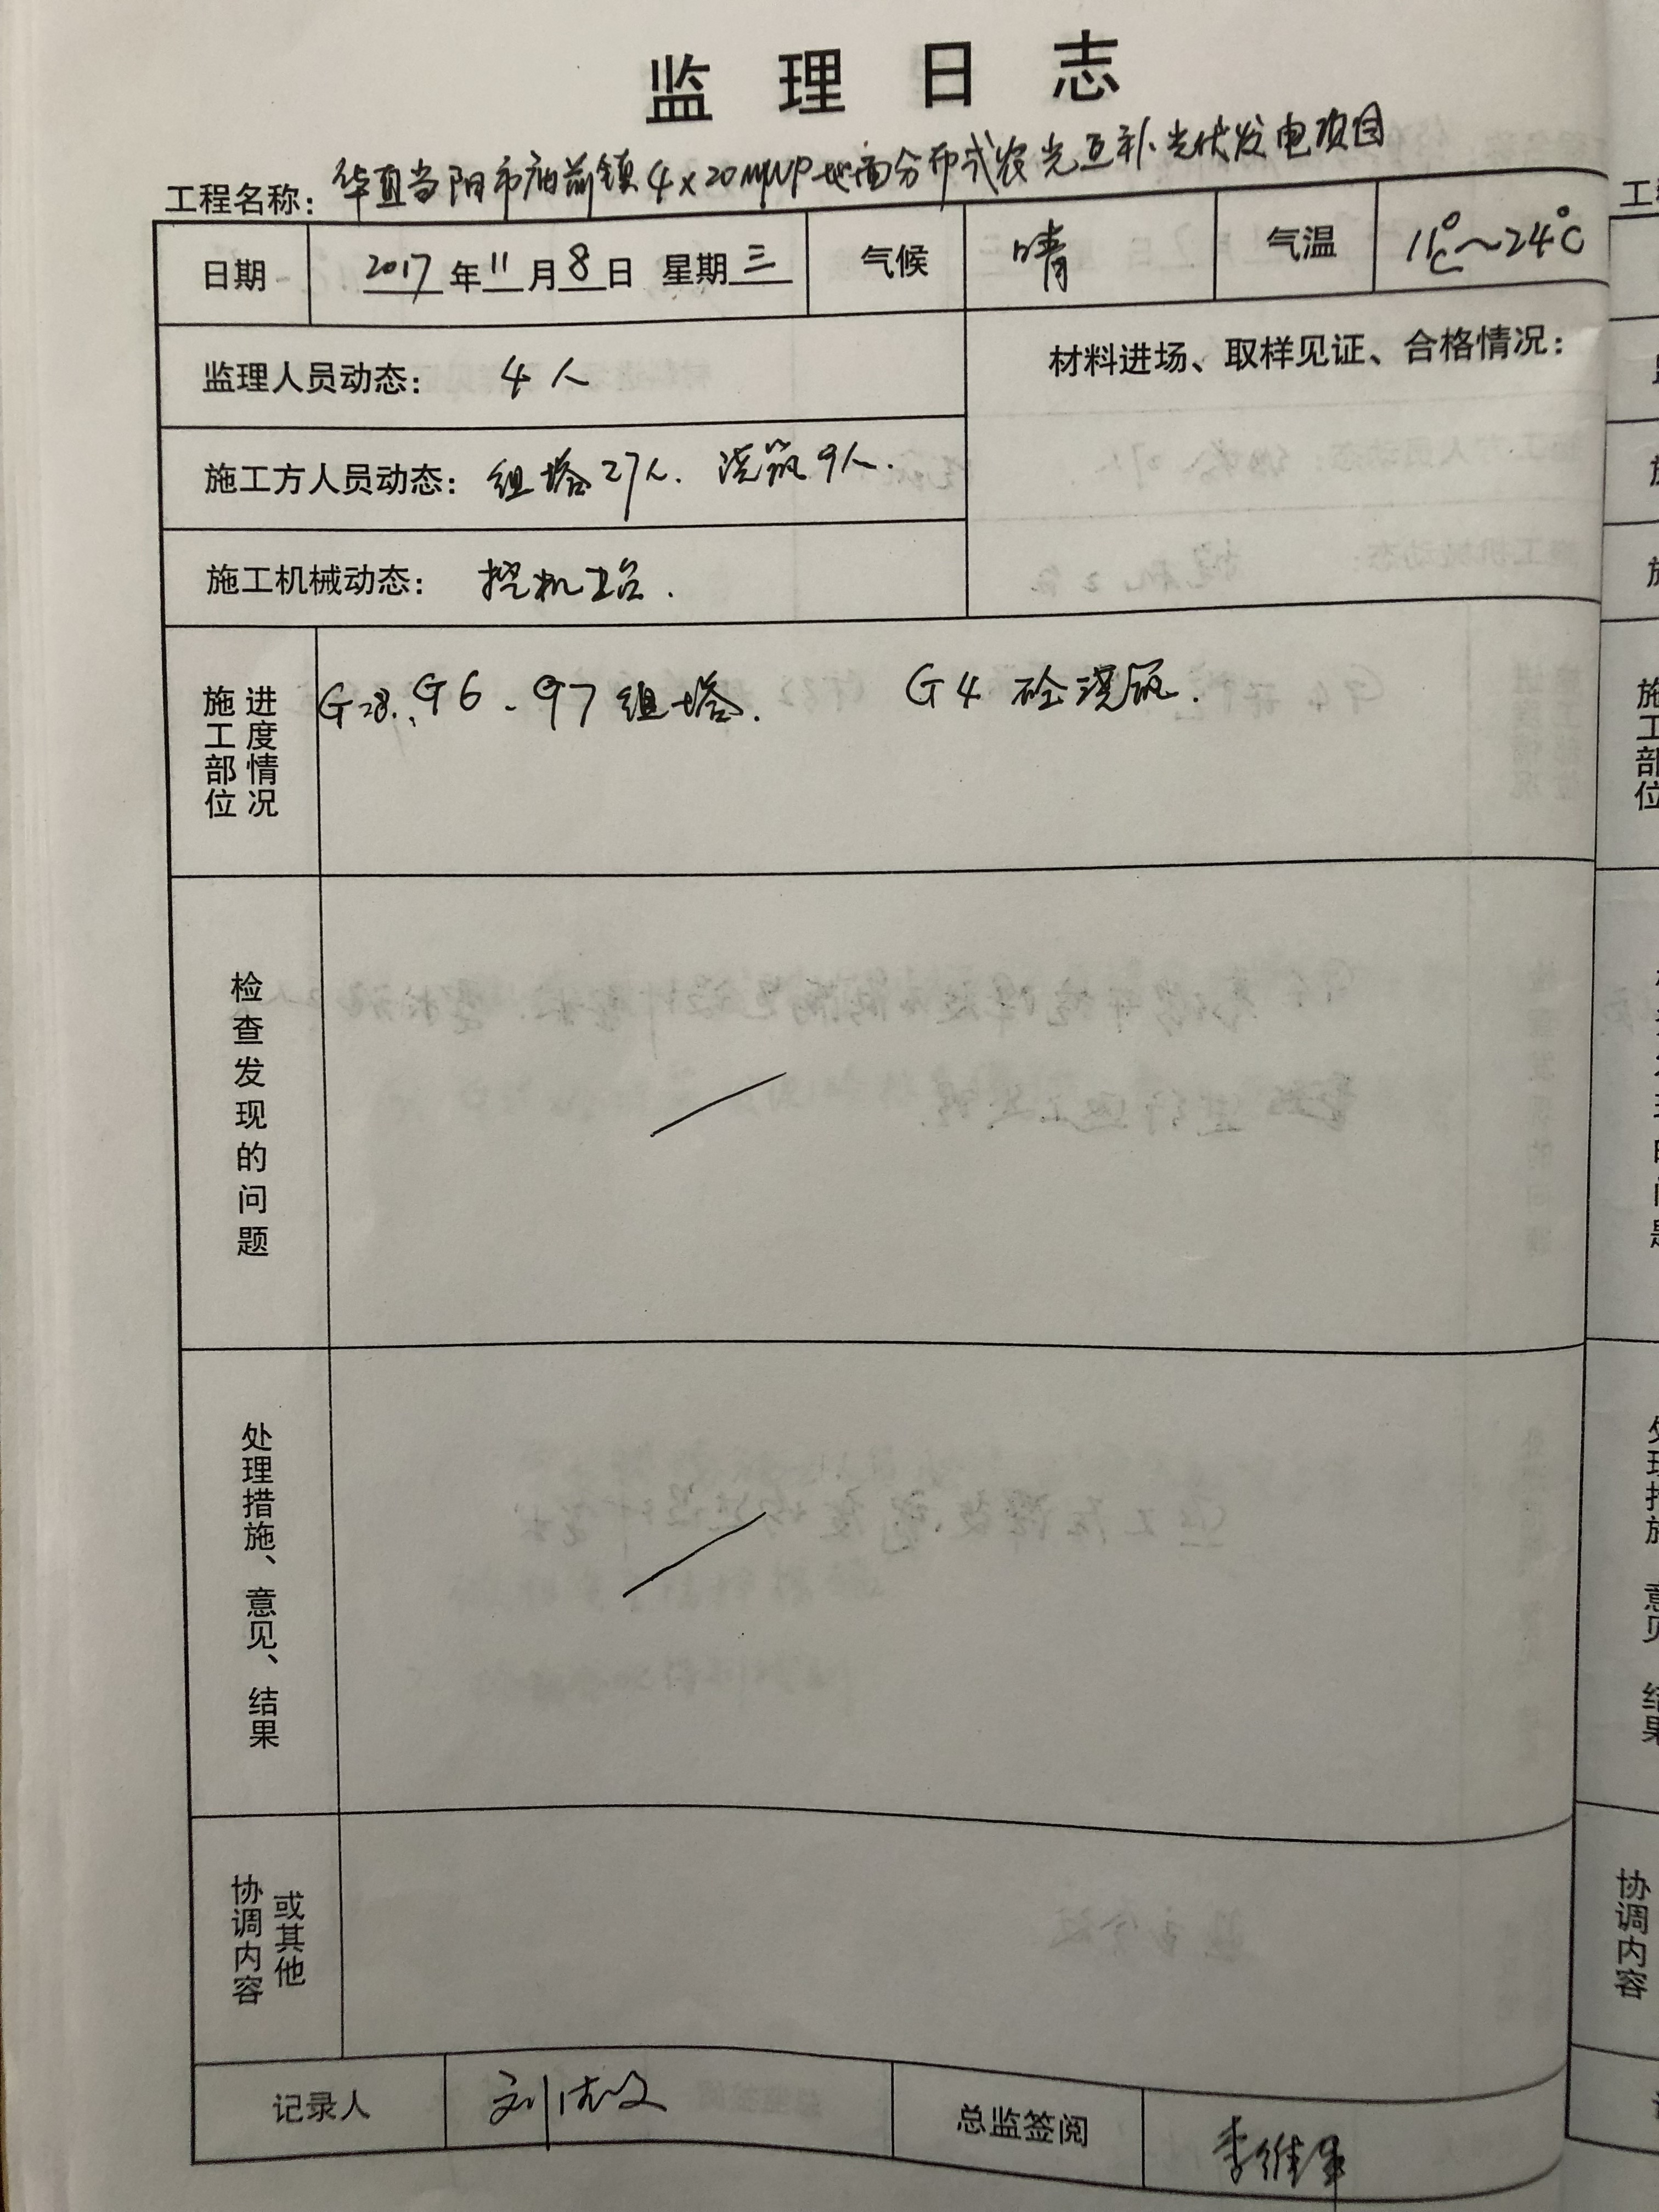 监理日志
工程名称：华直当阳市庙前镇4×20MWP地面分布式农光互补光伏发电项目
日期 2017年11月8日 星期三 气候 晴 气温 11℃～24℃
监理人员动态： 4人
材料进场、取样见证、合格情况：
施工方人员动态： 组塔27人. 浇筑9人.
施工机械动态： 挖机2台.
施工部位 进度情况
G28、G6、G7组塔. G4砼浇筑.
检查发现的问题
处理措施、意见、结果
协调内容 或其他
记录人 总监签阅